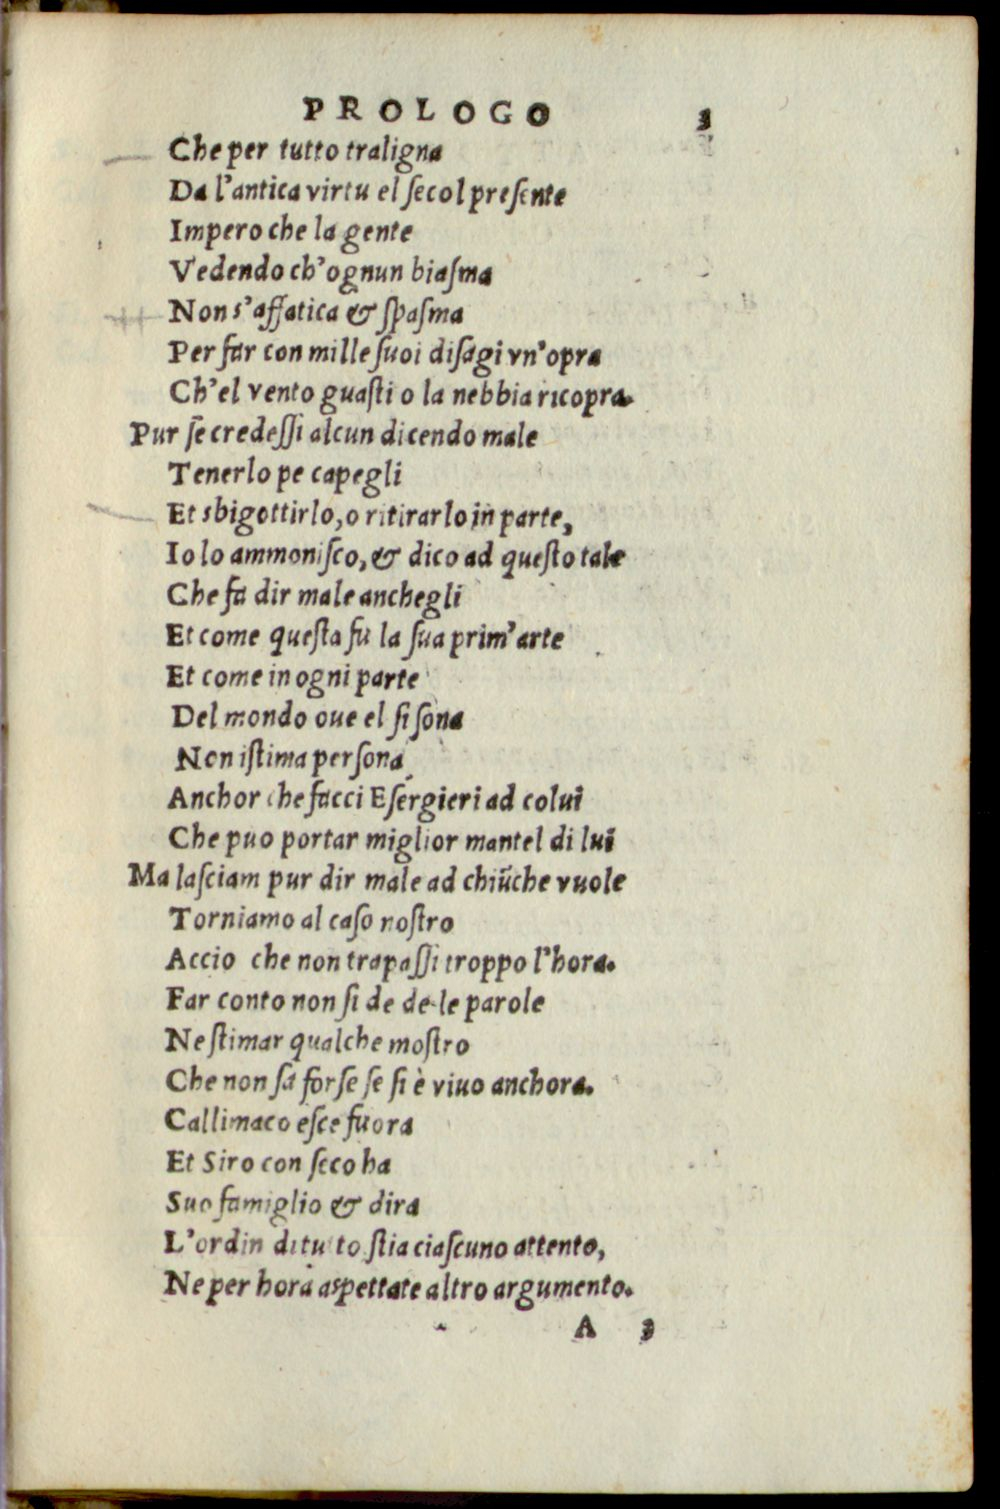 PROLOGO 3
Che per tutto traligna
Da l'antica virtu el ſecol preſente
Impero che la gente
Vedendo ch'ognun biaſma
Non s'affatica & ſpaſma
Per far con mille ſuoi diſagi vn'opra
Ch'el vento guaſti o la nebbia ricopra.
Pur ſe credeſſi alcun dicendo male
Tenerlo pe capegli
Et sbigottirlo, o ritirarlo in parte,
Io lo ammoniſco, & dico ad queſto tale
Che ſa dir male anchegli
Et come queſta fu la ſua prim'arte
Et come in ogni parte
Del mondo oue el ſi ſona
Non iſtima perſona
Anchor che facci Eſergieri ad colui
Che puo portar miglior mantel di lui
Ma laſciam pur dir male ad chiũche vuole
Torniamo al caſo noſtro
Accio che non trapaſſi troppo l'hora.
Far conto non ſi de de le parole
Ne ſtimar qualche moſtro
Che non ſa forſe ſe ſi è viuo anchora.
Callimaco eſce fuora
Et Siro con ſeco ha
Suo famiglio & dira
L'ordin di tutto ſtia ciaſcuno attento,
Ne per hora aspettate altro argumento.
A 3